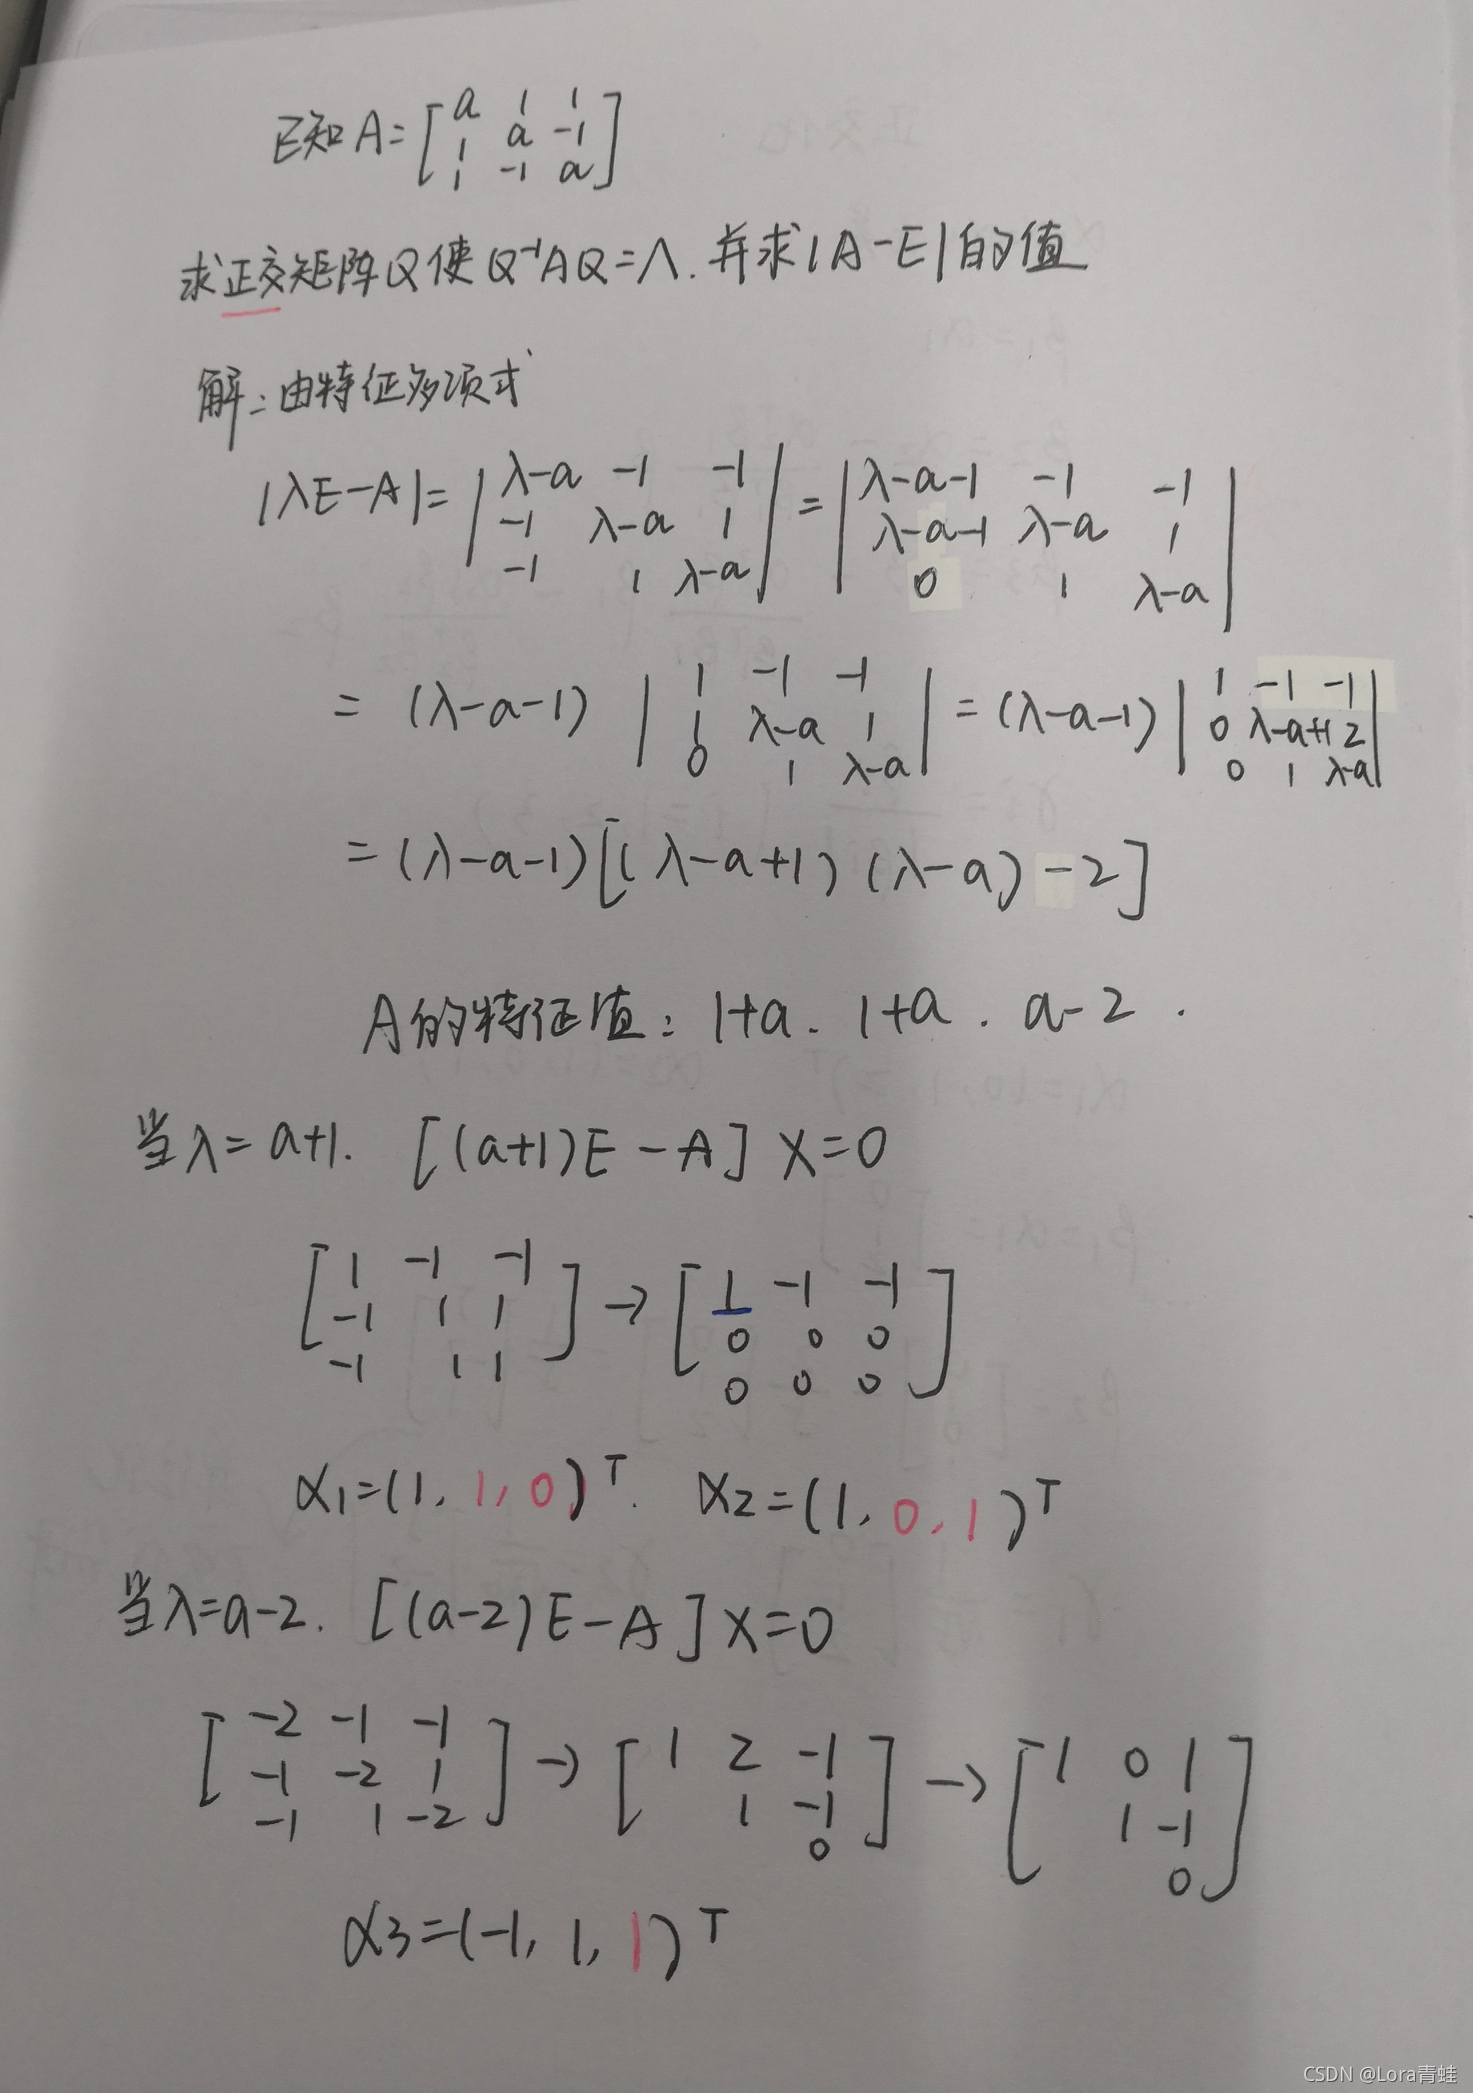 已知 A = [a 1 1
1 a -1
1 -1 a]
求正交矩阵Q使Q⁻¹AQ=Λ.并求|A-E|的值
解:由特征多项式
|λE-A| = |λ-a -1 -1 = |λ-a-1 -1 -1
-1 λ-a 1| λ-a-1 λ-a 1
-1 1 λ-a| 0 1 λ-a|
= (λ-a-1) |1 -1 -1 = (λ-a-1) |1 -1 -1
1 λ-a 1 0 λ-a+1 2
0 1 λ-a| 0 1 λ-a|
= (λ-a-1)[(λ-a+1)(λ-a)-2]
A的特征值: 1+a. 1+a. a-2.
当λ=a+1. [(a+1)E-A]X=0
[1 -1 -1 → [1 -1 -1
-1 1 1 0 0 0
-1 1 1] 0 0 0]
α1=(1,1,0)ᵀ. α2=(1,0,1)ᵀ
当λ=a-2. [(a-2)E-A]X=0
[-2 -1 -1 → [1 2 -1 → [1 0 1
-1 -2 1 1 -1 1 -1
-1 1 -2] 0] 0]
α3=(-1,1,1)ᵀ
CSDN @Lora青蛙